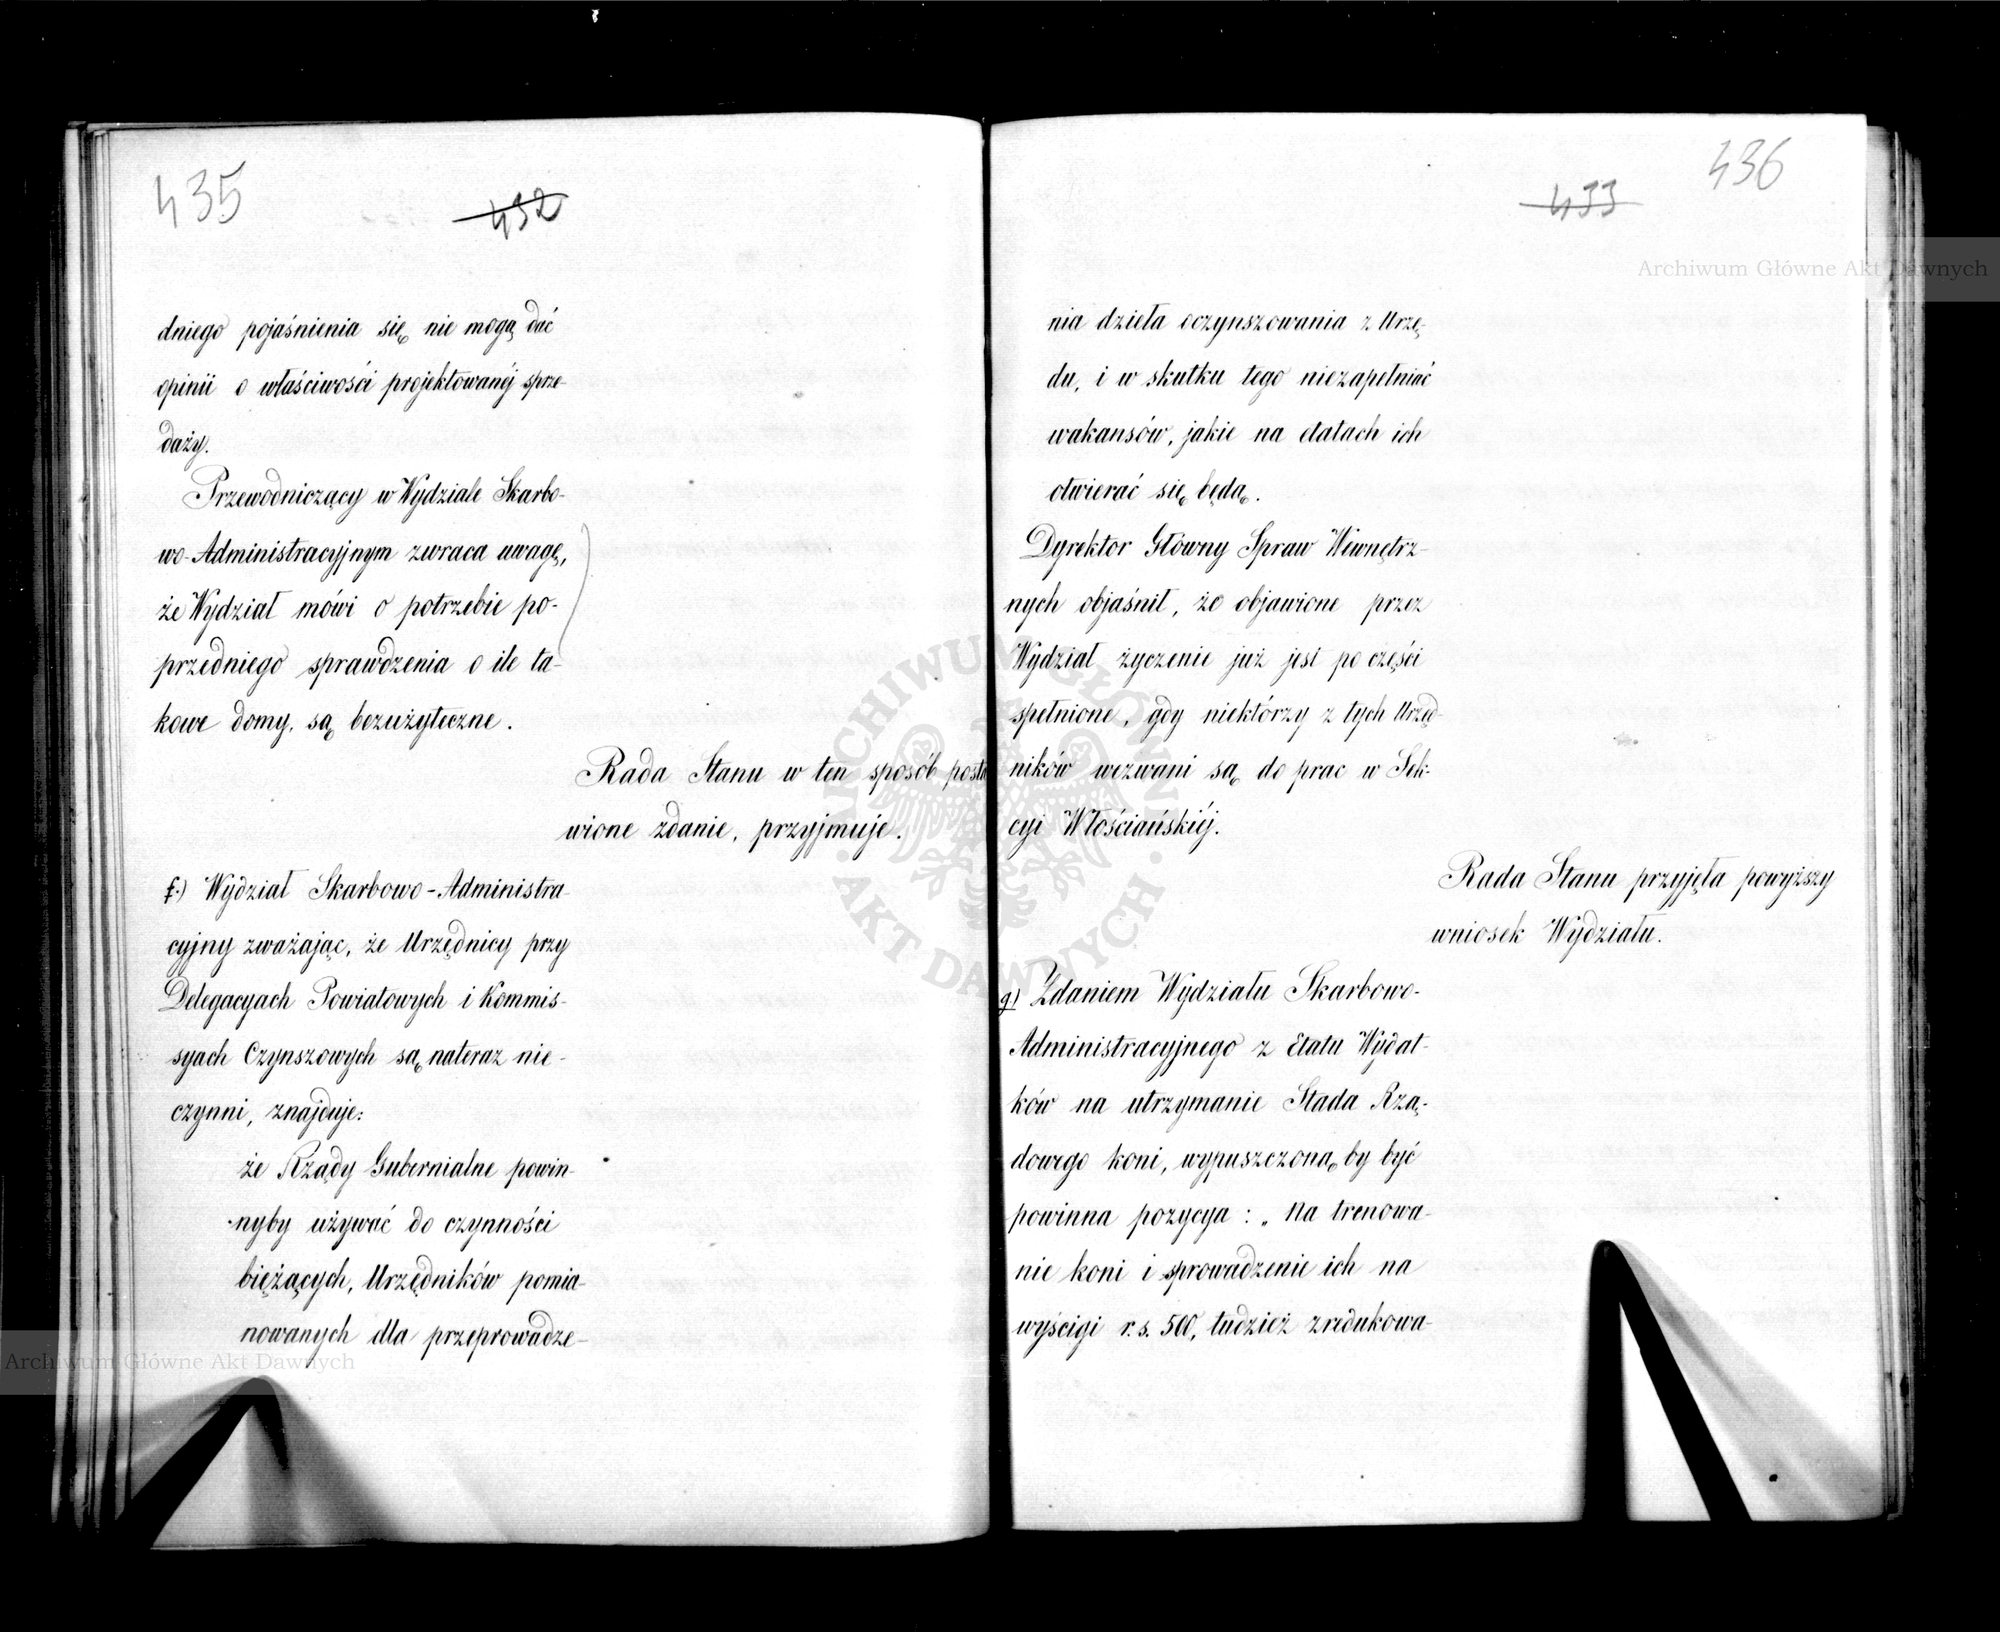 435
432
dniego pojaśnienia się, nie mogą dać
opinii o właściwości projektowanéj sprze-
daży.
Przewodniczący w Wydziale Skarbo-
wo-Administracyjnym zwraca uwagę,
że Wydział mówi o potrzebie po-
przedniego sprawdzenia o ile ta-
kowe domy, są bezużyteczne.
Rada Stanu w ten sposób posta
wione zdanie, przyjmuje.
f.) Wydział Skarbowo-Administra-
cyjny zważając, że Urzędnicy przy
Delegacyach Powiatowych i Kommis-
syach Czynszowych są nateraz nie-
czynni, znajduje:
że Rządy Gubernialne powin-
nyby używać do czynności
bieżących, Urzędników pomia-
nowanych dla przeprowadze-
436
433
nia dzieła oczynszowania z Urzę-
du, i w skutku tego niezapełniać
wakansów, jakie na etatach ich
otwierać się będą.
Dyrektor Główny Spraw Wewnętrz-
nych objaśnił, że objawione przez
Wydział życzenie już jest po części
spełnione, gdy niektórzy z tych Urzęd-
ników wezwani są do prac w Sek-
cyi Włościańskiéj.
Rada Stanu przyjęła powyższy
wniosek Wydziału.
g) Zdaniem Wydziału Skarbowo-
Administracyjnego z Etatu Wydat-
ków na utrzymanie Stada Rzą-
dowego koni, wypuszczoną by być
powinna pozycya: „Na trenowa-
nie koni i sprowadzenie ich na
wyścigi r. s. 500, tudzież zredukowa-
Archiwum Główne Akt Dawnych
Archiwum Główne Akt Dawnych
ARCHIWUM GŁÓWNE
AKT DAWNYCH